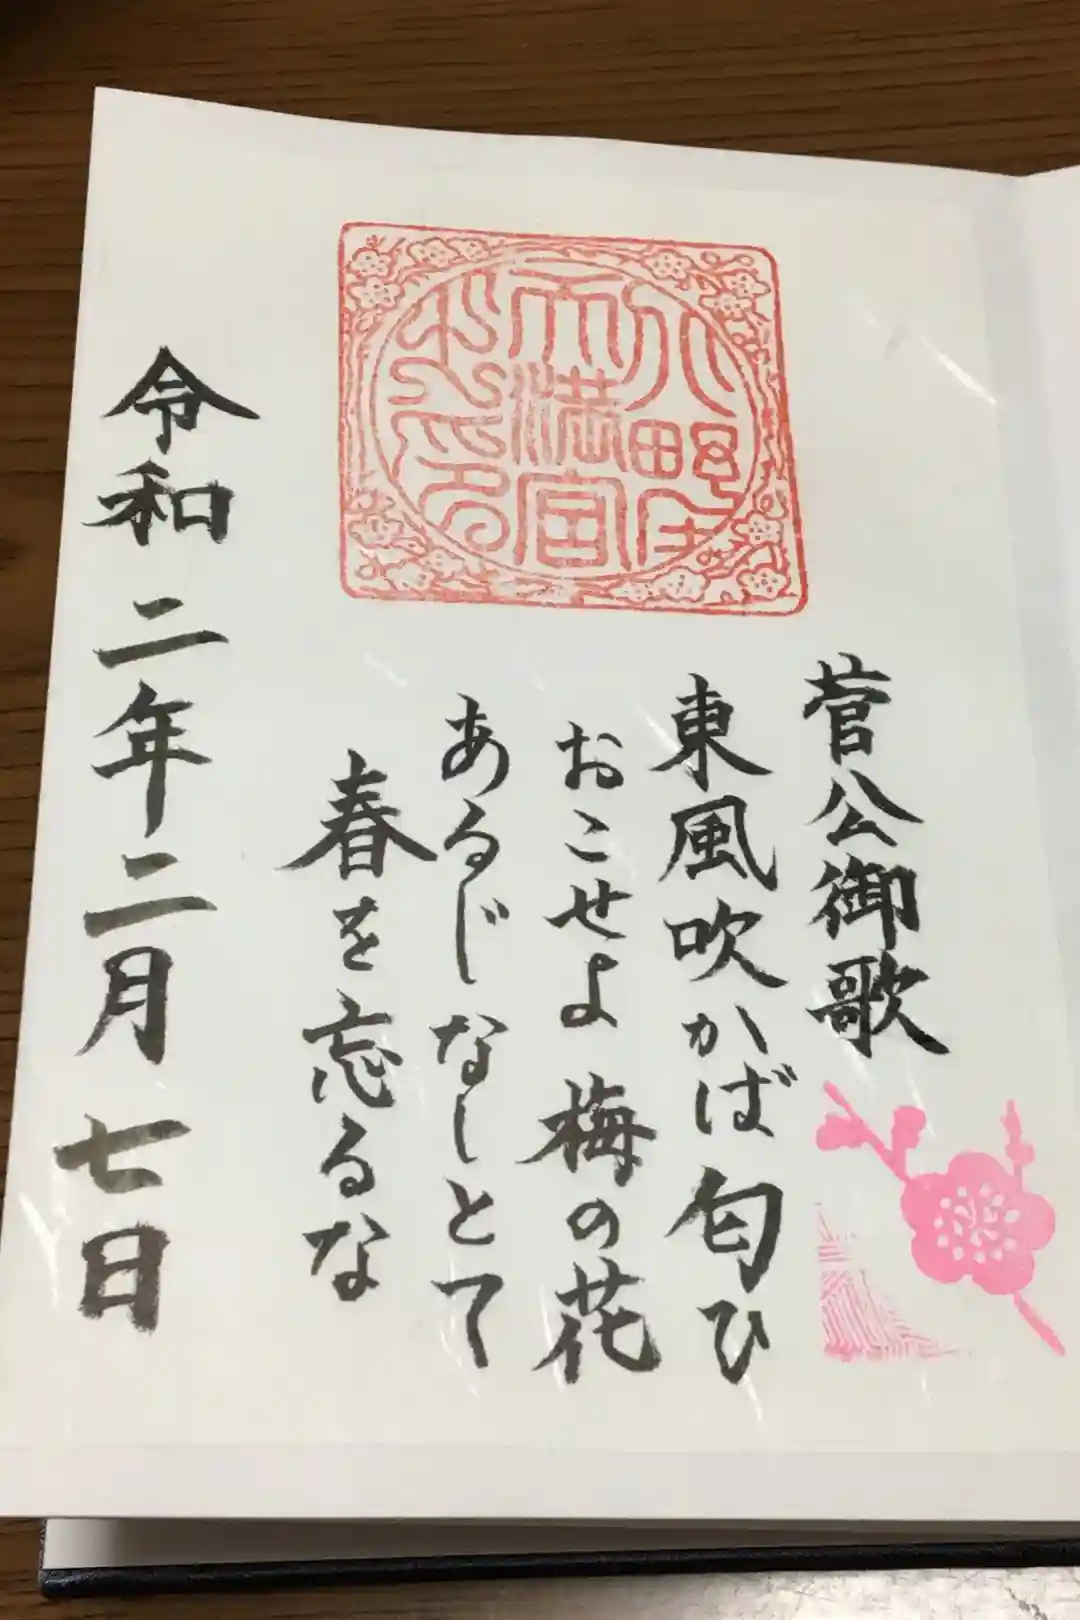 菅公御歌
東風吹かば匂ひ
おこせよ梅の花
あるじなしとて
春を忘るな
令和二年二月七日
天満宮